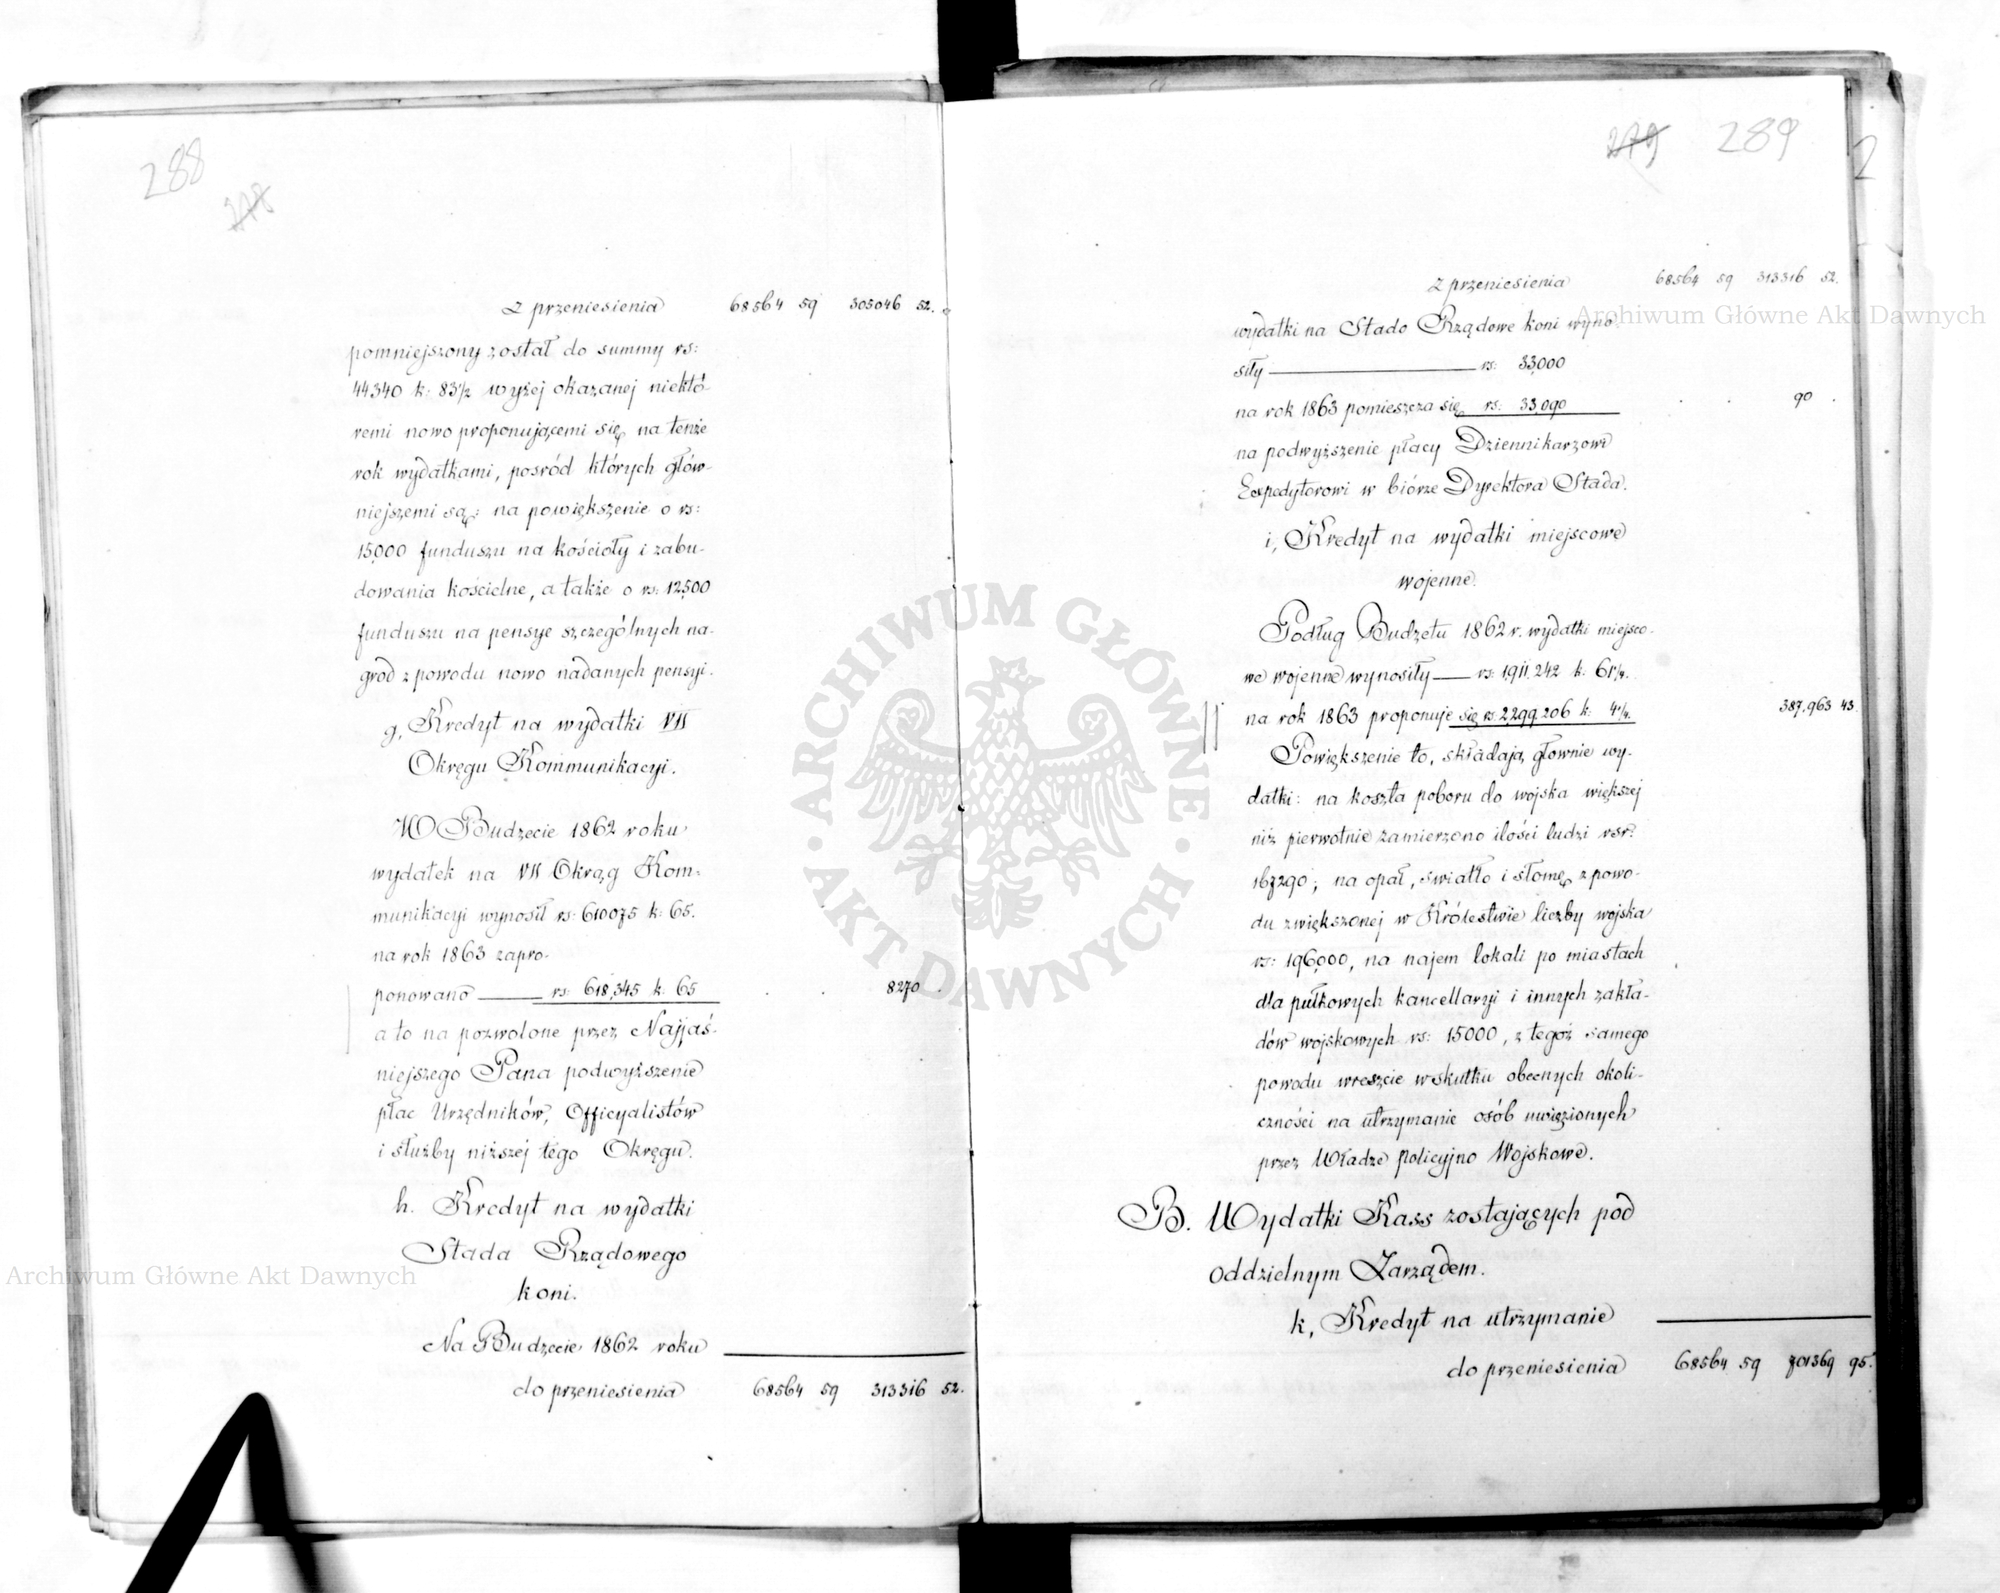 288
278
z przeniesienia 68564 59 305046 52.
pomniejszony został do summy rs:
44340 k: 83½ wyżej okazanej niektó-
remi nowo proponującemi się na tenże
rok wydatkami, pośród których głów-
niejszemi są: na powiększenie o rs:
15,000 funduszu na kościoły i zabu-
dowania kościelne, a także o rs: 12,500
funduszu na pensye szczególnych na-
gród z powodu nowo nadanych pensyi.
g, Kredyt na wydatki VII
Okręgu Kommunikacyi.
W Budżecie 1862 roku
wydatek na VII Okrąg Kom-
munikacyi wynosił rs: 610075 k: 65.
na rok 1863 zapro-
ponowano rs: 618,345 k: 65 8270
a to na pozwolone przez Najjaś-
niejszego Pana podwyższenie
płac Urzędników, Officyalistów
i służby niższej tego Okręgu.
h. Kredyt na wydatki
Stada Rządowego
koni.
Na Budżecie 1862 roku
do przeniesienia 68564 59 313316 52.
279 289
z przeniesienia 68564 59 313316 52.
wydatki na Stado Rządowe koni wyno-
siły rs: 33,000
na rok 1863 pomieszcza się rs: 33,090 90
na podwyższenie płacy Dziennikarzowi
Expedytorowi w biórze Dyrektora Stada.
i, Kredyt na wydatki miejscowe
wojenne.
Podług Budżetu 1862 r. wydatki miejsco-
we wojenne wynosiły rs: 1,911,242 k: 61¼.
na rok 1863 proponuje się rs. 2,299.206 k: 4¼. 387.963 43
Powiększenie to, składają głownie wy-
datki: na koszta poboru do wojska większej
niż pierwotnie zamierzono ilości ludzi rsr:
167290; na opał, swiatło i słomę z powo-
du zwiększonej w Królestwie liczby wojska
rs: 196,000, na najem lokali po miastach
dla pułkowych kancellaryi i innych zakła-
dów wojskowych rs: 15000, z tegoż samego
powodu wreszcie wskutku obecnych okoli-
czności na utrzymanie osób uwięzionych
przez Władze policyjno Wojskowe.
B. Wydatki Kass zostających pod
Oddzielnym Zarządem.
k, Kredyt na utrzymanie
do przeniesienia 68564 59 701369 95.
Archiwum Główne Akt Dawnych
Archiwum Główne Akt Dawnych
ARCHIWUM GŁÓWNE
AKT DAWNYCH